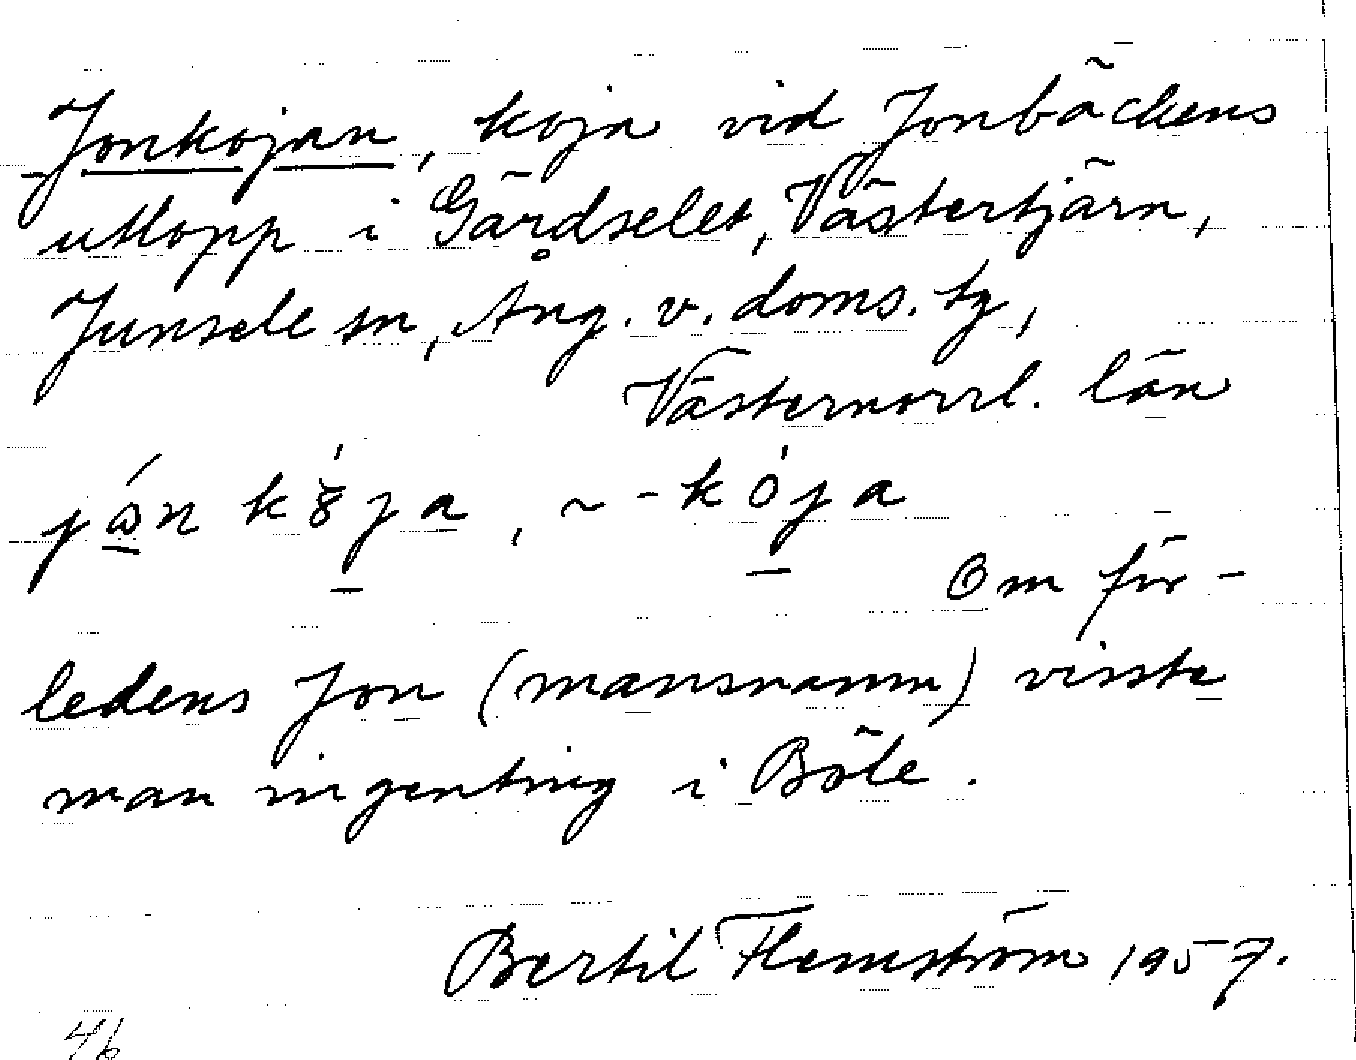 Jonkojan, koja vid Jonbäckens
utlopp i Gärdselet, Västertjärn,
Junsele sn, Ång. v. doms. tg,
Västernorrl. län
~ - kója
Om för-
ledens Jon (mansnamn) visste
man ingenting i Böle.
Bertil Flemström 1957.
46